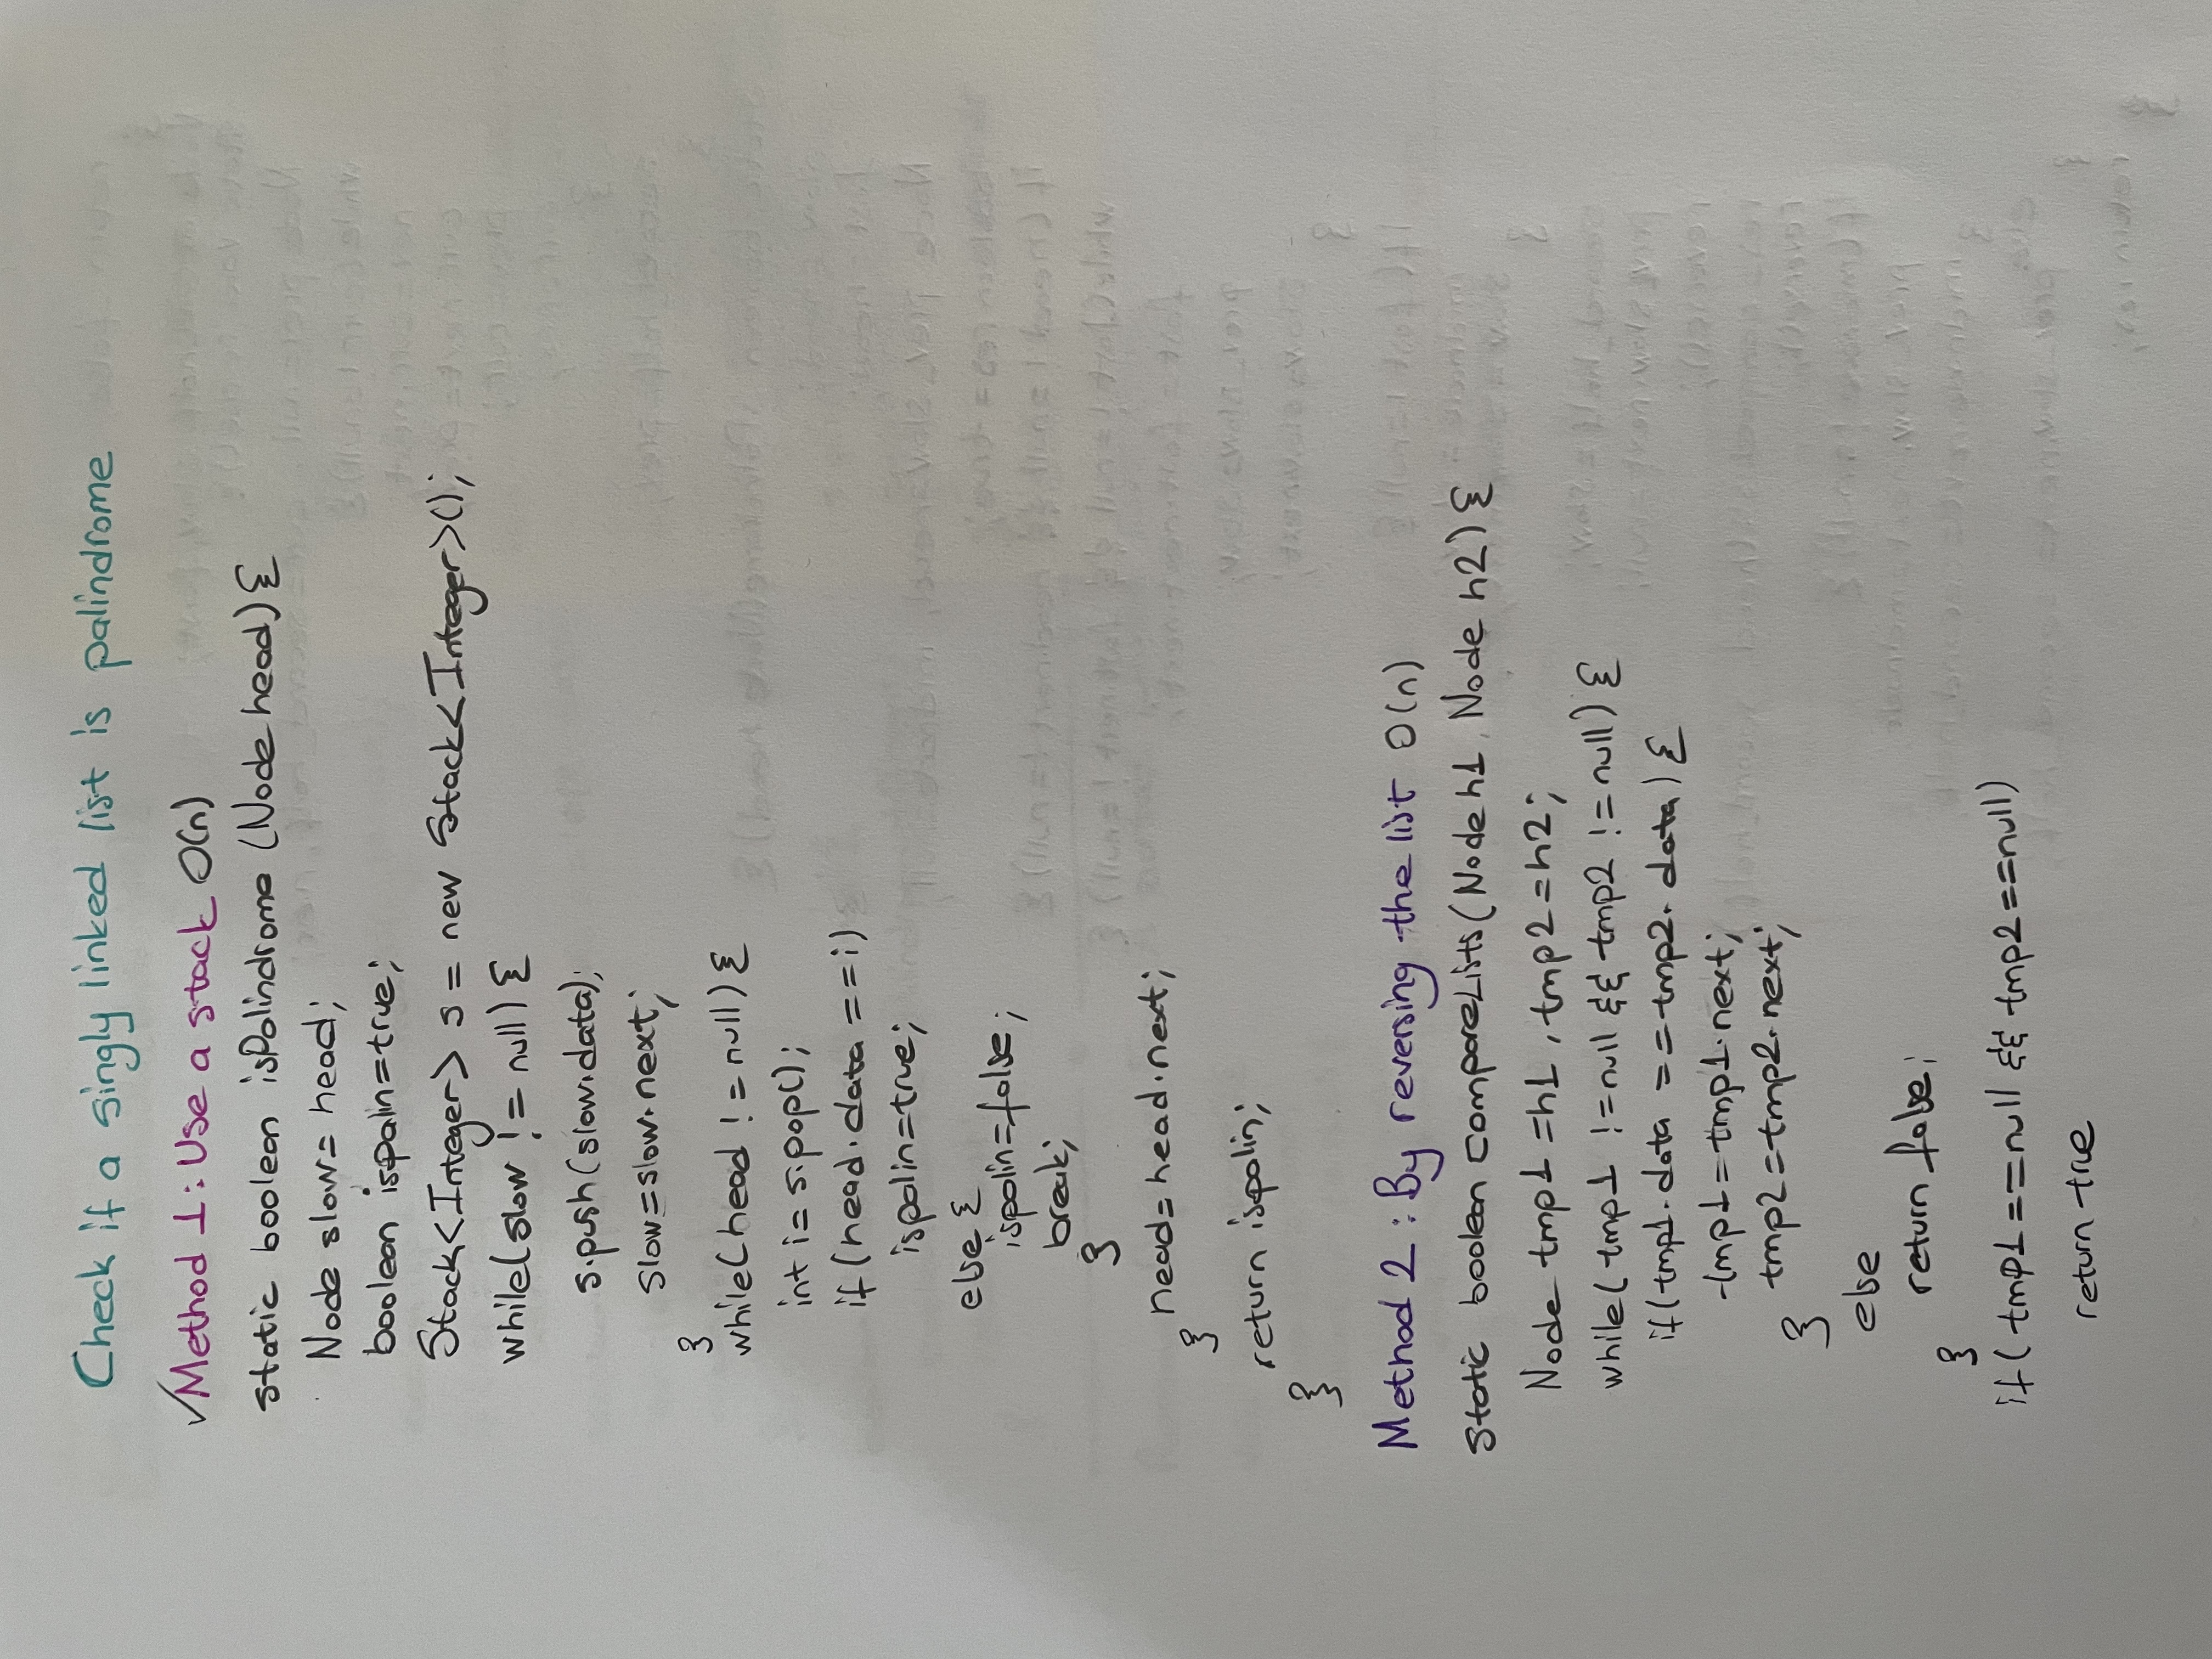 Check if a singly linked list is palindrome
✓Method 1: Use a stack O(n)
static boolean isPalindrome (Node head) {
Node slow = head;
boolean ispalin=true;
Stack<Integer> s = new Stack<Integer>();
while(slow != null) {
s.push(slow.data);
slow=slow.next;
}
while(head != null) {
int i= s.pop();
if (head.data ==i)
ispalin=true;
else {
ispalin=false;
break;
}
head= head.next;
}
return ispalin;
}
Method 2 : By reversing the list O(n)
static boolean compareLists (Node h1, Node h2) {
Node tmp1 =h1, tmp2 =h2;
while( tmp1 !=null && tmp2 != null) {
if(tmp1.data ==tmp2.data) {
tmp1=tmp1.next;
tmp2=tmp2.next;
}
else
return false;
}
if( tmp1 ==null && tmp2 ==null)
return true